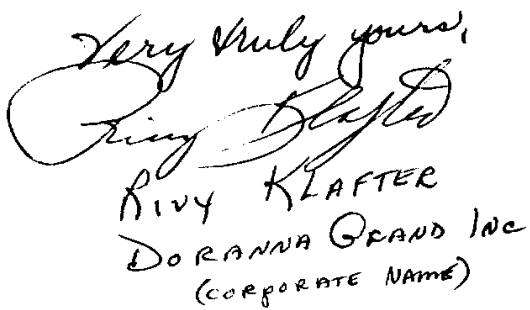 Very truly yours,
Rivy Klafter
RIVY KLAFTER
DORANNA GRAND INC
(CORPORATE NAME)